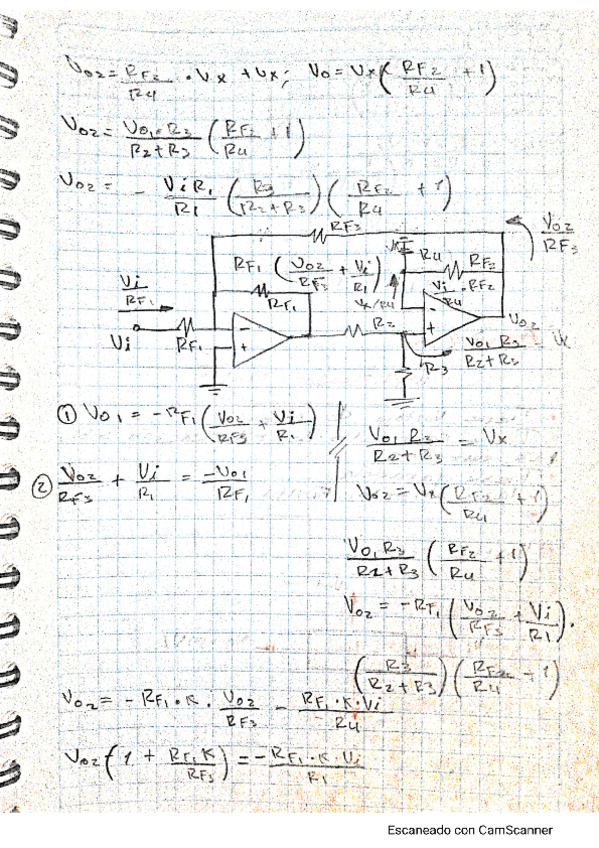 Vo2 = RF2/R4 · Vx + Vx; Vo = Vx (RF2/R4 + 1)
Vo2 = Vo1 · R3/R2+R3 (RF2/R4 + 1)
Vo2 = - Vi R1/R1 (R3/R2+R3) (RF2/R4 + 1)
RF3
Vo2/RF3
RF1 (Vo2/RF3 + Vi/R1)
R4
RF2
Vi/RF1
RF1
Vx/R4
Vi/R4 · RF2
R2
Vo2
Vi
RF1
-
+
-
+
R3
Vo1 R3/R2+R3 = Vx
① Vo1 = -RF1 (Vo2/RF3 + Vi/R1)
② Vo2/RF3 + Vi/R1 = -Vo1/RF1
Vo1 R3/R2+R3 = Vx
Vo2 = Vx (RF2/R4 + 1)
Vo1 R3/R2+R3 (RF2/R4 + 1)
Vo2 = -RF1 (Vo2/RF3 + Vi/R1).
(R3/R2+R3) (RF2/R4 + 1)
Vo2 = - RF1 · K · Vo2/RF3 - RF1 · K · Vi/R4
Vo2 (1 + RF1 K/RF3) = - RF1 · K · Vi/R1
Escaneado con CamScanner